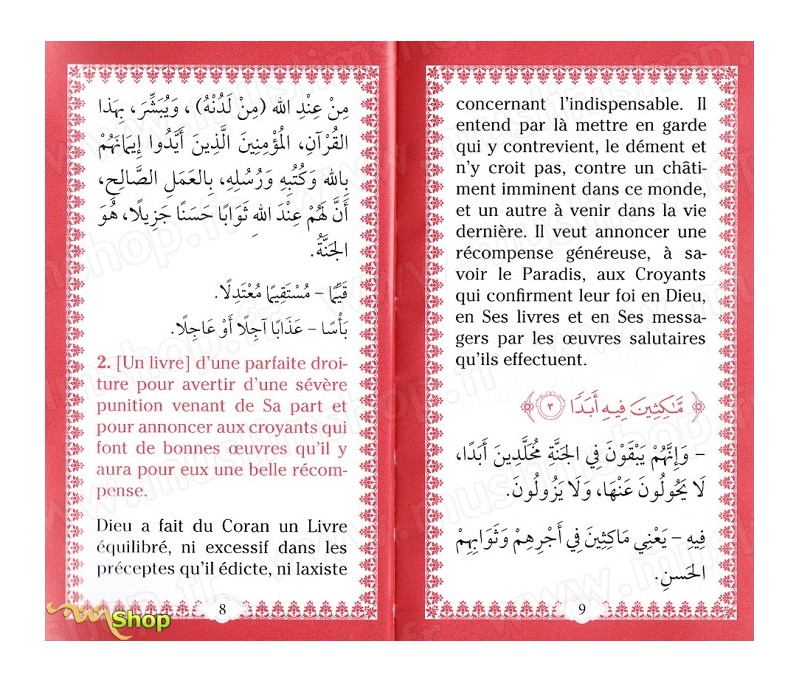 مِنْ عِنْدِ الله (مِنْ لَدُنْهُ) ، وَيُبَشِّرَ، بِهَذا
القُرْآنِ، المُؤْمِنِينَ الَّذِينَ أَيَّدُوا إِيمَانَهُمْ
بِالله وَكُتُبِهِ وَرُسُلِهِ، بِالعَمَلِ الصَّالِحِ،
أَنَّ لَهُمْ عِنْدَ اللهِ ثَوَابًا حَسَنًا جَزِيلًا، هُوَ
الجَنَّةُ.
قَيِّمًا – مُسْتَقِيمًا مُعْتَدِلًا.
بَأْسًا – عَذَابًا آجِلًا أَوْ عَاجِلًا.
2. [Un livre] d’une parfaite droi-
ture pour avertir d’une sévère
punition venant de Sa part et
pour annoncer aux croyants qui
font de bonnes œuvres qu’il y
aura pour eux une belle récom-
pense.
Dieu a fait du Coran un Livre
équilibré, ni excessif dans les
préceptes qu’il édicte, ni laxiste
8
concernant l’indispensable. Il
entend par là mettre en garde
qui y contrevient, le dément et
n’y croit pas, contre un châti-
ment imminent dans ce monde,
et un autre à venir dans la vie
dernière. Il veut annoncer une
récompense généreuse, à sa-
voir le Paradis, aux Croyants
qui confirment leur foi en Dieu,
en Ses livres et en Ses messa-
gers par les œuvres salutaires
qu’ils effectuent.
﴿ مَّٰكِثِينَ فِيهِ أَبَدًا ٣ ﴾
– وَإِنَّهُمْ يَبْقَوْنَ فِي الجَنَّةِ مُخَلَّدِينَ أَبَدًا،
لَا يَحُولُونَ عَنْهَا، وَلَا يَزُولُونَ.
فِيهِ – يَعْنِي مَاكِثِينَ فِي أَجْرِهِمْ وَثَوَابِهِمْ
الحَسَنِ.
9
mShop
www.muslimshop.fr